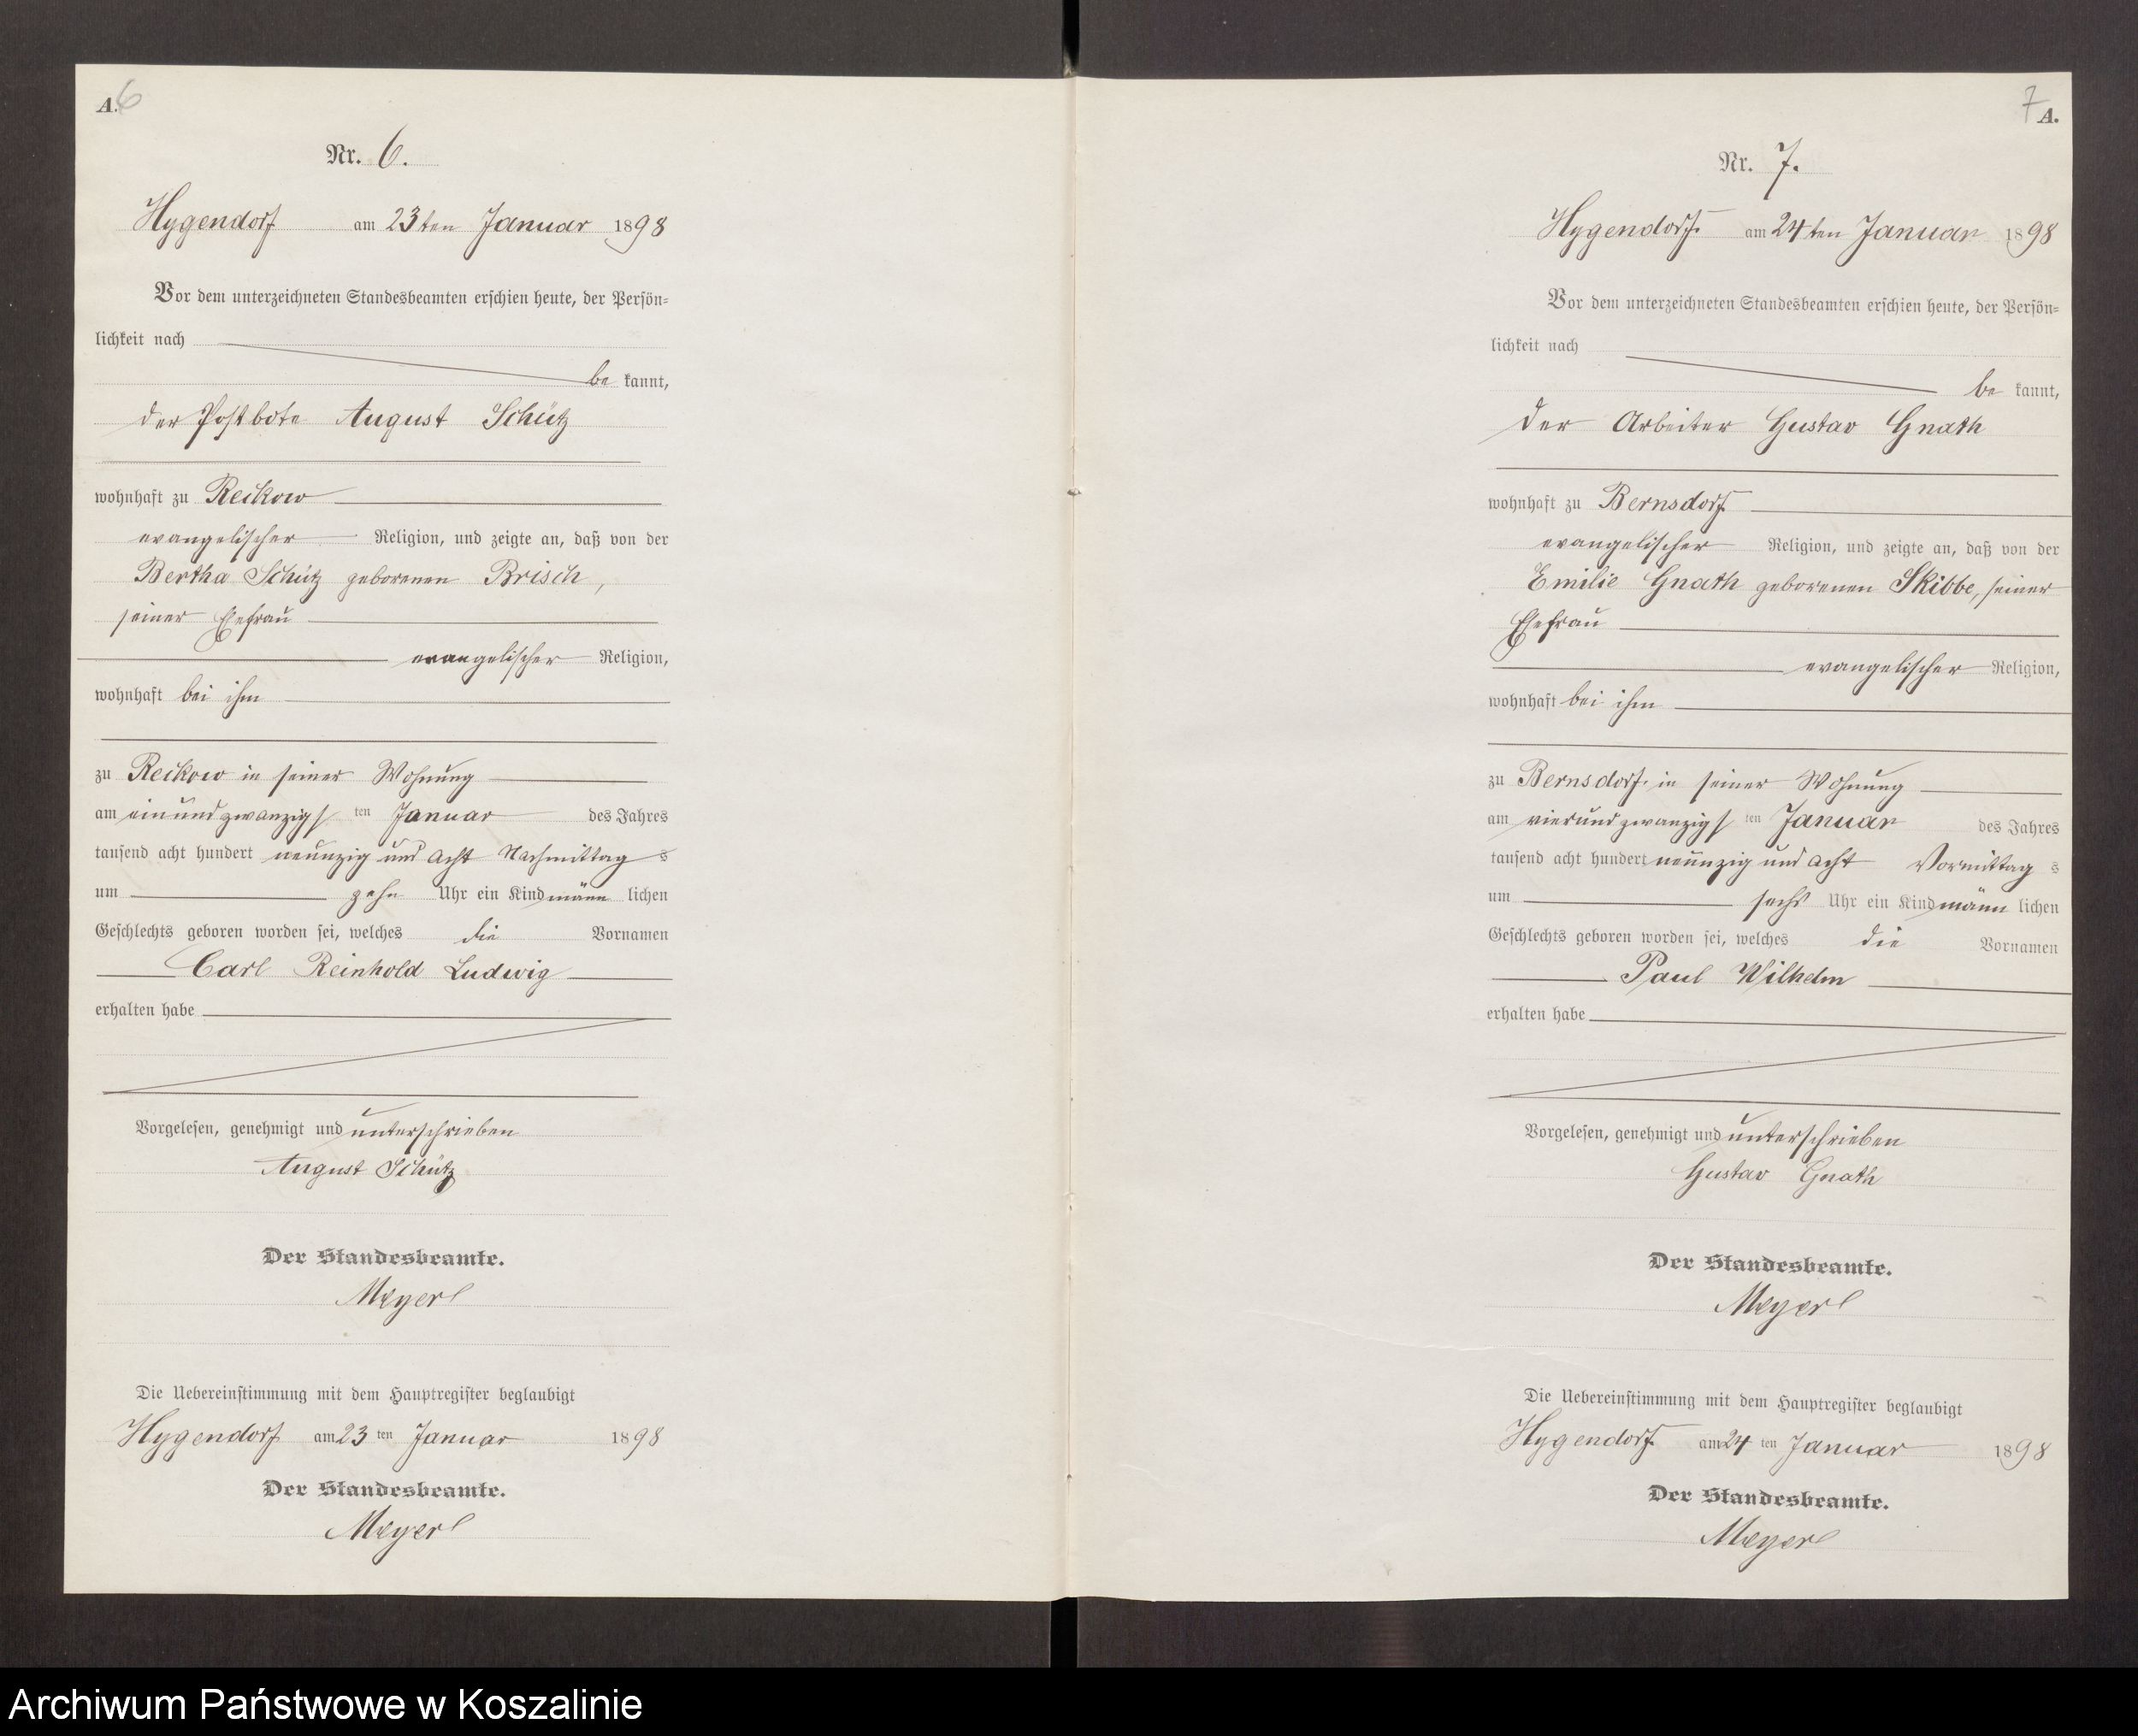 A. 6
Nr. 6.
Hygendorf am 23ten Januar 1898
Vor dem unterzeichneten Standesbeamten erschien heute, der Persön-
lichkeit nach
be kannt,
der Postbote August Schütz
wohnhaft zu Reikow
evangelischer Religion, und zeigte an, daß von der
Bertha Schütz geborenen Brisch,
seiner Ehefrau
evangelischer Religion,
wohnhaft bei ihm
zu Reikow in seiner Wohnung
am einundzwanzigsten Januar des Jahres
tausend acht hundert neunzig und acht Nachmittags
um zehn Uhr ein Kind männlichen
Geschlechts geboren worden sei, welches die Vornamen
Carl Reinhold Ludwig
erhalten habe
Vorgelesen, genehmigt und unterschrieben
August Schütz
Der Standesbeamte.
Meyer
Die Uebereinstimmung mit dem Hauptregister beglaubigt
Hygendorf am 23ten Januar 1898
Der Standesbeamte.
Meyer
7 A.
Nr. 7.
Hygendorf am 24ten Januar 1898
Vor dem unterzeichneten Standesbeamten erschien heute, der Persön-
lichkeit nach
be kannt,
der Arbeiter Gustav Gnath
wohnhaft zu Bernsdorf
evangelischer Religion, und zeigte an, daß von der
Emilie Gnath geborenen Skibbe, seiner
Ehefrau
evangelischer Religion,
wohnhaft bei ihm
zu Bernsdorf in seiner Wohnung
am vierundzwanzigsten Januar des Jahres
tausend acht hundert neunzig und acht Vormittags
um sechs Uhr ein Kind männlichen
Geschlechts geboren worden sei, welches die Vornamen
Paul Wilhelm
erhalten habe
Vorgelesen, genehmigt und unterschrieben
Gustav Gnath
Der Standesbeamte.
Meyer
Die Uebereinstimmung mit dem Hauptregister beglaubigt
Hygendorf am 24ten Januar 1898
Der Standesbeamte.
Meyer
Archiwum Państwowe w Koszalinie